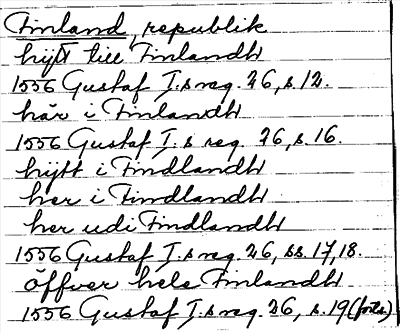 Finland, republik
hijt till Finlandh
1556 Gustaf I.s reg. 26, s. 12.
här i Finlandh
1556 Gustaf I.s reg. 26, s. 16.
hijtt i Findlandh
her i Findlandh
her udi Findlandh
1556 Gustaf I.s reg. 26, ss. 17, 18.
öffver hele Finlandh
1556 Gustaf I.s reg. 26, s. 19 (forts.)